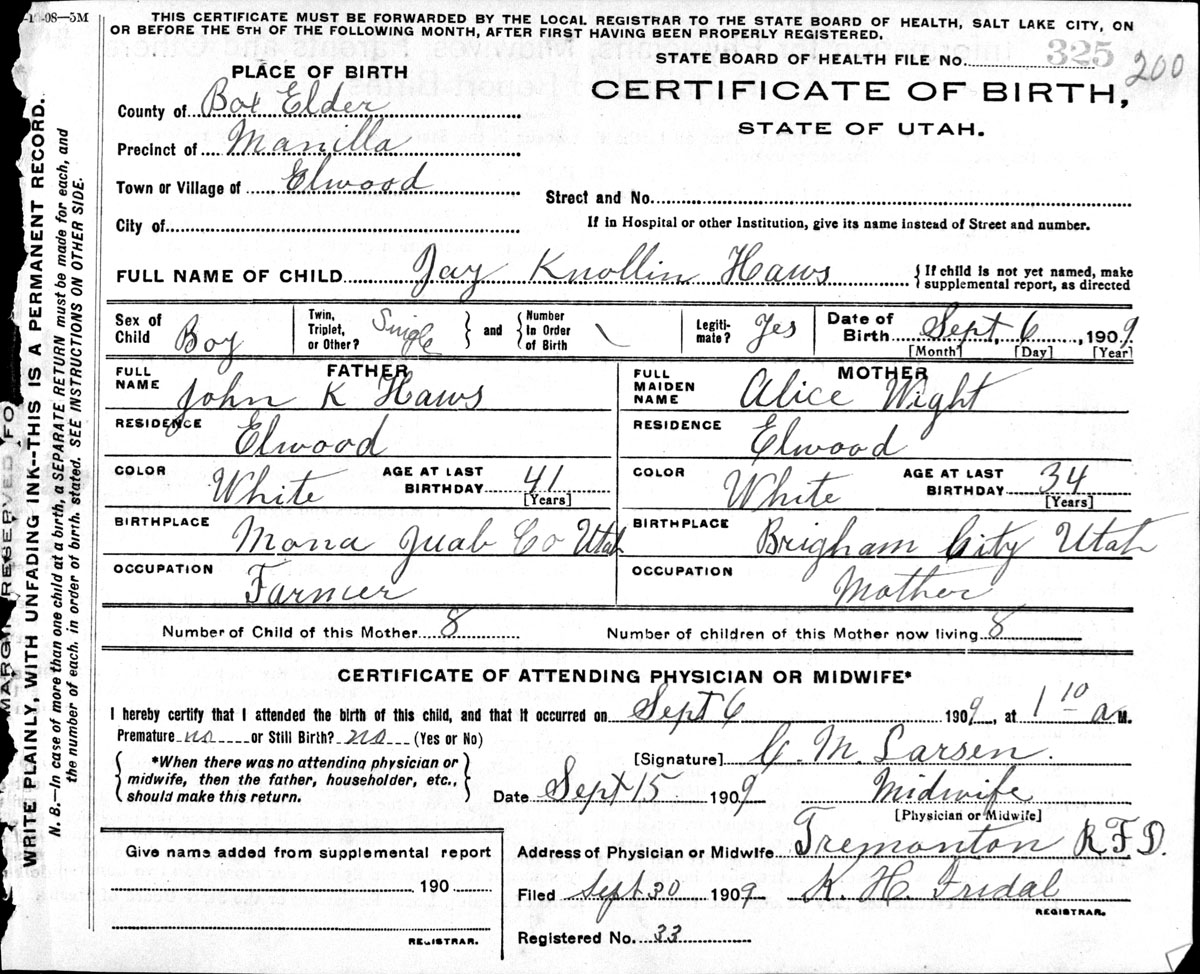 -1 -08—5M
THIS CERTIFICATE MUST BE FORWARDED BY THE LOCAL REGISTRAR TO THE STATE BOARD OF HEALTH, SALT LAKE CITY, ON
OR BEFORE THE 5TH OF THE FOLLOWING MONTH, AFTER FIRST HAVING BEEN PROPERLY REGISTERED.
STATE BOARD OF HEALTH FILE NO. 325 200
PLACE OF BIRTH
CERTIFICATE OF BIRTH,
STATE OF UTAH.
County of Box Elder
Precinct of Manilla
Town or Village of Elwood
Street and No.
City of
If in Hospital or other Institution, give its name instead of Street and number.
FULL NAME OF CHILD Jay Knollin Haws { If child is not yet named, make supplemental report, as directed
Sex of Child Boy Twin, Triplet, or Other? Single } and { Number in Order of Birth \ Legiti-mate? Yes Date of Birth Sept, 6, 1909
[Month] [Day] [Year]
FATHER
FULL NAME John K Haws
MOTHER
FULL MAIDEN NAME Alice Wight
RESIDENCE Elwood
RESIDENCE Elwood
COLOR White AGE AT LAST BIRTHDAY 41 [Years]
COLOR White AGE AT LAST BIRTHDAY 34 [Years]
BIRTHPLACE Mona Juab Co Utah
BIRTHPLACE Brigham City Utah
OCCUPATION Farmer
OCCUPATION Mother
Number of Child of this Mother 8 Number of children of this Mother now living 8
CERTIFICATE OF ATTENDING PHYSICIAN OR MIDWIFE*
I hereby certify that I attended the birth of this child, and that it occurred on Sept 6 1909, at 1 10 a M.
Premature no or Still Birth? no (Yes or No)
[Signature] C. M. Larsen.
{ *When there was no attending physician or
midwife, then the father, householder, etc.,
should make this return. }
Date Sept 15 1909 Midwife
[Physician or Midwife]
Address of Physician or Midwife Tremonton R.F.D.
Filed Sept 30 1909 K. H. Fridal
REGISTRAR.
Registered No. 33
Give name added from supplemental report
190
REGISTRAR.
MARGIN RESERVED FO
WRITE PLAINLY, WITH UNFADING INK--THIS IS A PERMANENT RECORD.
N. B.—In case of more than one child at a birth, a SEPARATE RETURN must be made for each, and
the number of each, in order of birth, stated. SEE INSTRUCTIONS ON OTHER SIDE.